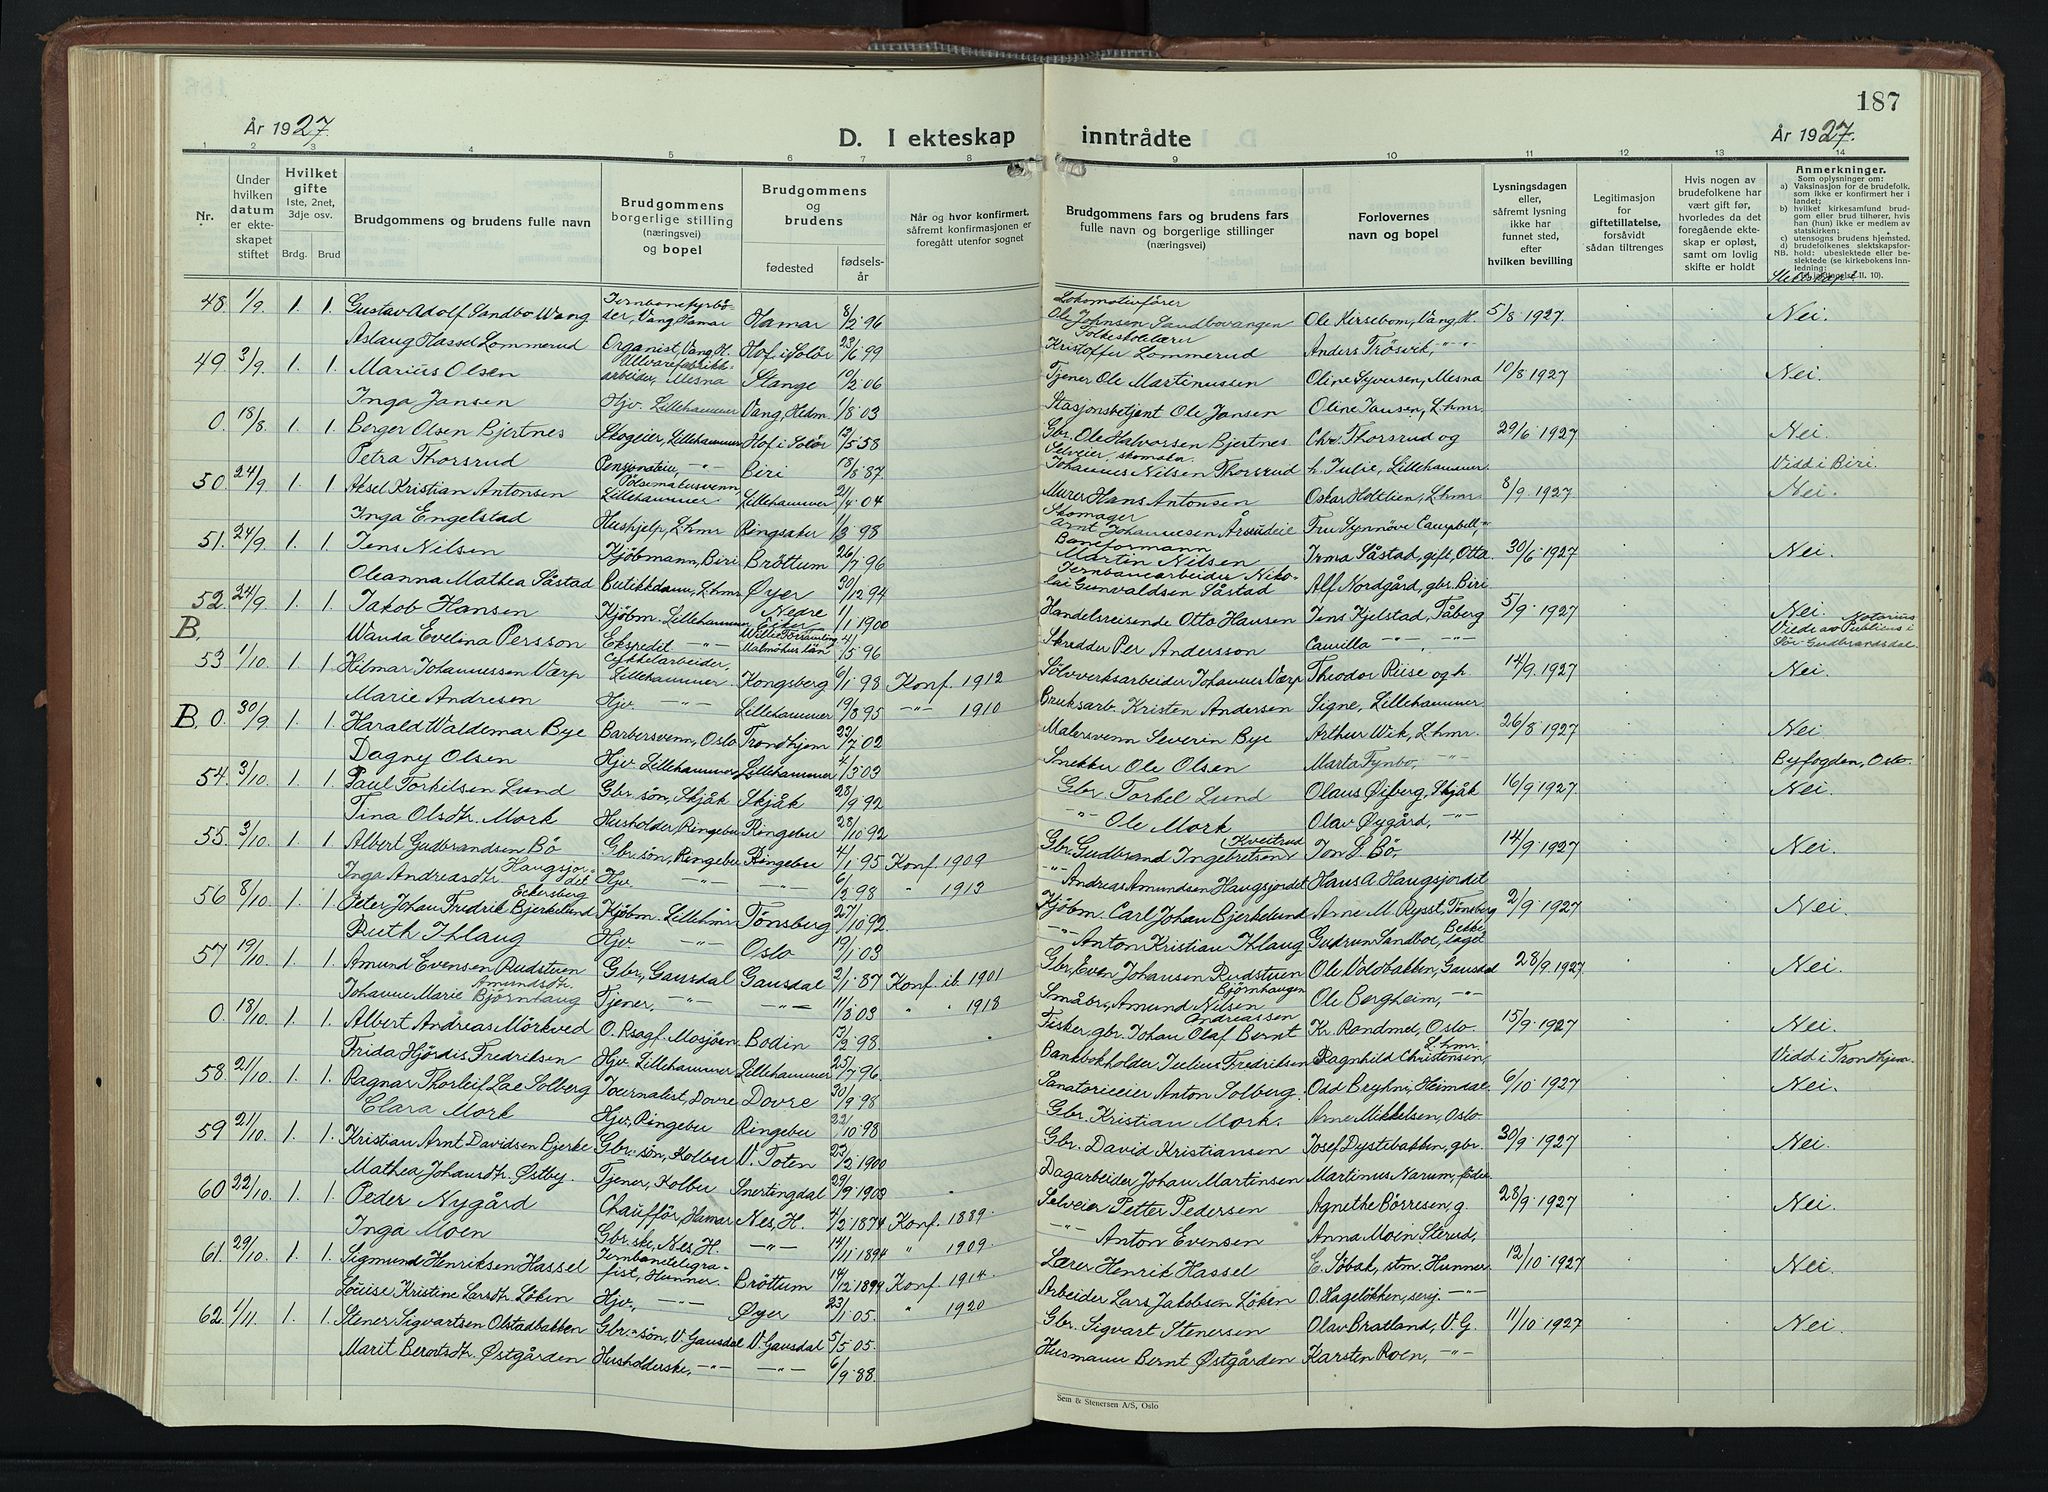 187
År 1927.
D. I ekteskap inntrådte
År 1927.
1 2 3 4 5 6 7 8 9 10 11 12 13 14
Nr.
Under hvilken datum er ekte-skapet stiftet
Hvilket gifte 1ste, 2net, 3dje osv.
Brdg. Brud
Brudgommens og brudens fulle navn
Brudgommens borgerlige stilling (næringsvei) og bopel
Brudgommens og brudens
fødested
fødsels-år
Når og hvor konfirmert, såfremt konfirmasjonen er foregått utenfor sognet
Brudgommens fars og brudens fars fulle navn og borgerlige stillinger (næringsvei)
Forlovernes navn og bopel
Lysningsdagen eller, såfremt lysning ikke har funnet sted, efter hvilken bevilling
Legitimasjon for giftetillatelse, forsåvidt sådan tiltrenges
Hvis nogen av brudefolkene har vært gift før, hvorledes da det foregående ekte-skap er opløst, samt om lovlig skifte er holdt
Anmerkninger.
Som oplysninger om:
a) Vaksinasjon for de brudefolk, som ikke er konfirmert her i landet;
b) hvilket kirkesamfund brud-gom eller brud tilhører, hvis han (hun) ikke er medlem av statskirken;
c) utensogns brudens hjemsted.
d) brudefolkenes slektskapsfor-hold: ubeslektede eller be-slektede (se kirkebokens inn-ledning:
Slektskap:
48. 1/9. 1. 1. Gustav Adolf Sandbo Wang Jernbanefyrbö-ter, Vang Hamar Hamar 8/2 96 Lokomotivförer Ole Johnsen Sandbovangen Ole Kirsebom, Vang H. 5/8 1927. Nei.
Aslaug Hassel Lommerud Organist, Vang H. Hof i Solör 23/6 99 Folkeskolelærer Kristoffer Lommerud Anders Trösvik, -"-
49. 3/9. 1. 1. Marius Olsen Ullvarefabrikk-arbeider, Mesna Stange 10/2 06 Tjener Ole Martinussen Oline Syversen, Mesna 10/8 1927 Nei.
Inga Jansen Hjv. Lillehammer Vang, Hedm. 1/8 03 Stasjonsbetjent Ole Jansen Oline Jansen, Lhmr.
0. 18/8 1. 1. Berger Olsen Bjertnes Skogeier, Lillehammer Hof i Solör 13/5 58 Gbr. Ole Halvorsen Bjertnes Chr. Thorsrud og 29/6 1927 Nei.
Petra Thorsrud -"- Biri 18/8 87. Selveier, skomaker Johannes Nilsen Thorsrud h. Julie, Lillehammer. Vidd i Biri.
50. 24/9. 1. 1 Aksel Kristian Antonsen Pölsemakersvenn, Lillehammer Lillehammer 2/4 04 Murer Hans Antonsen Oskar Holtlien, Lhmr. 8/9 1927. Nei.
Inga Engelstad Hushjelp, Lhmr Ringsaker 1/3 98 Skomager Arnt Johannesen Fru Synnöve Campbell, "
51. 24/9 1. 1. Jens Nilsen Kjöbmann, Biri Bröttum 26/7 96 Baneformann Martin Nilsen Irma Såstad, gift, Otta 30/6 1927 Nei.
Oleanna Mathea Såstad Butikkdame, Lhmr Øyer 30/12 94 Jernbanearbeider Niko-lai Gunvaldsen Såstad Alf Nordgård, gbr. Biri
52. 24/9 1. 1. Jakob Hansen Kjöbm. Lillehammer Nedre Eiker 11/1 1900 Handelsreisende Otto Hansen Jens Kjelstad, Fåberg 5/9 1927. Nei.
B. Wanda Evelina Persson Ekspedit. -"- Malmöhus län 4/5 96 Skredder Per Andersson Camilla -"- -"- Viede av Notarius Publicus i Sör-Gudbrandsdal.
53. 1/10. 1. 1 Hilmar Johannessen Værp Cykkelarbeider, Lillehammer. Kongsberg 6/1 98 Konf. 1912 Sölvverksarbeider Johannes Værp Theodor Riise og h. 14/9 1927. Nei.
Marie Andresen Hjv -"- Lillehammer 19/8 95 -"- 1910 Bruksarb. Kristen Andersen Signe, Lillehammer
B. 0. 30/9 1. 1. Harald Waldemar Bye Barbersvenn, Oslo Trondhjem 22/7 02 Malersvenn Severin Bye Arthur Wik, Lhmr. 26/8 1927. Nei.
Dagny Olsen Hjv Lillehammer Lillehammer 4/3 03 Snekker Ole Olsen Marta Fynbo, -"- Byfogden, Oslo.
54. 3/10. 1 1. Paul Torkelsen Lund Gbr. sön, Skjåk Skjåk 28/9 92 Gbr Torkel Lund Olaus Øiberg, Skjåk 16/9 1927. Nei.
Tina Olsdtr. Mork Husholder, Ringebu Ringebu 28/10 92 -"- Ole Mork Olav Øygård, -"-
55. 3/10. 1. 1. Albert Gudbrandsen Bö Gbr. sön, Ringebu Ringebu 4/1 95 Konf. 1909 Gbr. Gudbrand Ingebretsen (Kveitrud Jon S. Bö, 14/9 1927. Nei.
Inga Andreasdtr. Haugsjor-det Hjv. -"- -"- 6/2 98 " 1913 -"- Andreas Amundsen Haugsjordet Hans A. Haugsjordet
56 8/10 1. 1. Peter Johan Fredrik Eckersberg Bjerkelund Kjöbm. Lillehmr Tönsberg 27/10 92 Kjöbm. Carl Johan Bjerkelund Arne M. Rysst, Tönsberg 2/9 1927 Nei.
Ruth Ihlaug Hjv -"- Oslo 19/1 03 -"- Anton Kristian Ihlaug Gudrun Sandboe, Bekke-laget
57 19/10. 1. 1. Amund Evensen Rudstuen Gbr., Gausdal Gausdal 2/1 87 Konf. ib. 1901 Gbr. Even Johansen Rudstuen Ole Voldbakken, Gausdal 28/9 1927. Nei.
Johanne Marie Amundsdtr. Björnhaug Tjener, -"- -"- 11/8 03 " " 1918 Småbr. Amund Nilsen Bjørnhaugen Ole Bergheim, -"-
0. 18/10. 1. 1. Albert Andreas Mörkved O.r.sagf. Mosjöen Bodin 5/2 98. Fisker, gbr. Johan Olaf Bernt Andreassen Kr. Randmel, Oslo 15/9 1927. Nei.
Frida Hjördis Fredriksen Hjv Lillehammer Lillehammer 25/7 96 Bankbokholder Julius Fredriksen Ragnhild Christensen, Lhmr. Vidd i Trondhjem.
58. 21/10. 1. 1. Ragnar Thorleif Lae Solberg Journalist, Dovre Dovre 30/9 98 Sanatorieeier Anton Solberg. Odd Bryhni, Heimdal 6/10 1927 Nei.
Clara Mork Hjv., Ringebu Ringebu 22/10 98 Gbr. Kristian Mork. Arne Mikkelsen, Oslo
59 21/10. 1. 1. Kristian Arnt Davidsen Bjerke Gbr.-sön, Kolbu V. Toten 23/2 1900 Gbr. David Kristiansen Josef Dystebakken, gbr. 30/9 1927 Nei.
Mathea Johansdtr. Østby. Tjener, Kolbu Snertingdal 29/9 1900 Dagarbeider Johan Martinsen Martinus Narum,
60 22/10. 1. 1. Peder Nygård Chaufför, Hamar Nes, H. 4/2 1874 Konf. 1889. Selveier Petter Pedersen Agnethe Börresen, g. 28/9 1927 Nei.
Inga Moen Gbr.ske, Nes H. -"- 14/11 1894 " 1909. -"- Anton Evensen Anna Moen Sterud,
61. 29/10. 1. 1. Sigmund Henriksen Hassel Jernbanetelegra-fist, Hunner. Bröttum 14/12 1899 Konf. 1914. Lærer Henrik Hassel C. Söbak, stm. Hunner 12/10 1927 Nei.
Louise Kristine Larsdtr. Löken Hjv, -"- Øyer 23/1 05. " 1920 Arbeider Lars Jakobsen Löken O. Hagelökken, serj. -"-
62. 1/11. 1. 1. Stener Sigvartsen Olstadbakken Gbr.-sön, V. Gausdal V. Gausdal 5/5 05. Gbr. Sigvart Stenersen Olav Bratland, V. G. 11/10 1927 Nei.
Marit Berntsdtr. Østgården Husholderske, -"- -"- 6/9 88. Husmann Bernt Østgården Karsten Roen, -"-
Sem & Stenersen A/S, Oslo